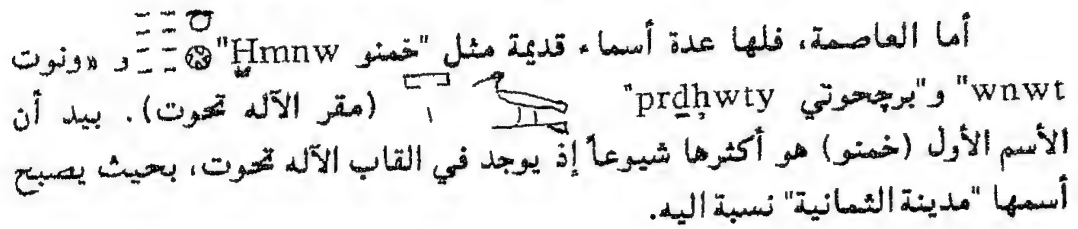 أما العاصمة، فلها عدة أسماء قديمة مثل "خمنو Ḫmnw" و «ونوت
wnwt" و"برجحوتي prdḥwty" (مقر الآله تحوت). بيد أن
الأسم الأول (خمنو) هو أكثرها شيوعاً إذ يوجد في القاب الآله تحوت، بحيث يصبح
أسمها "مدينة الثمانية" نسبة اليه.